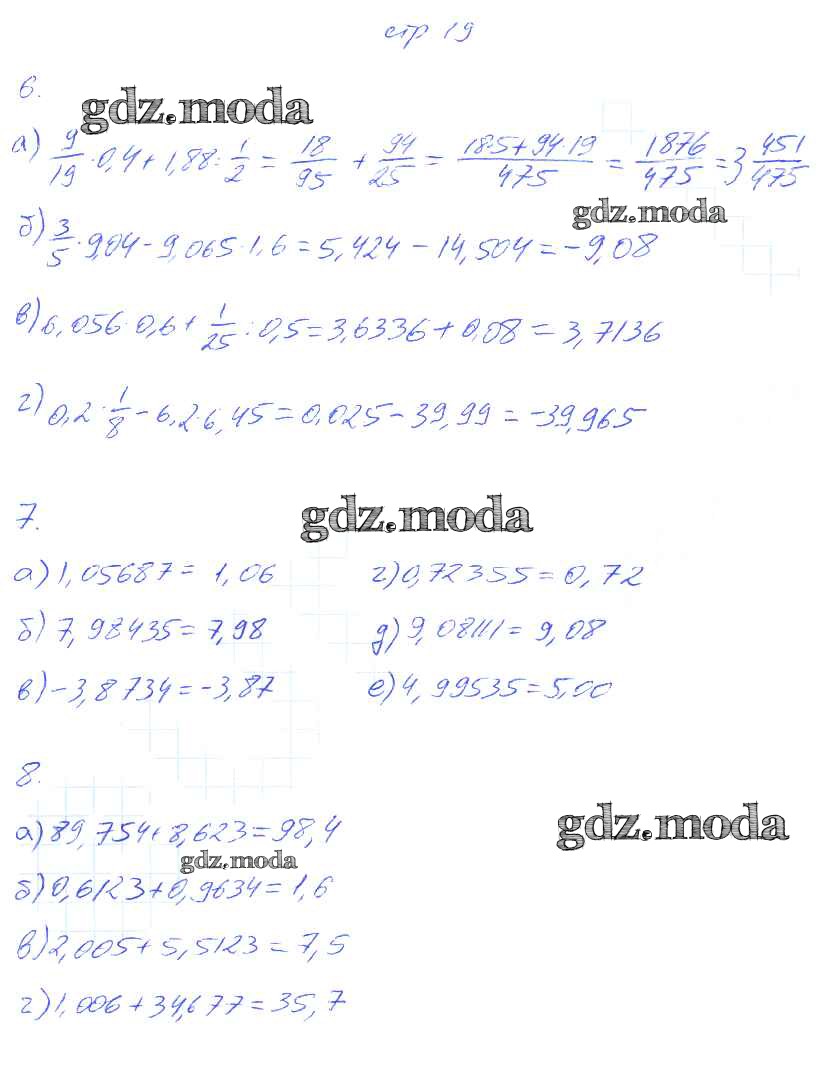 стр 19
6.
gdz.moda
а) 9/19 · 0,4 + 1,88 : 1/2 = 18/95 + 94/25 = (18·5+94·19)/475 = 1876/475 = 3 451/475
gdz.moda
б) 3/5 · 9,04 - 9,065 · 1,6 = 5,424 - 14,504 = -9,08
в) 6,056 · 0,6 + 1/25 : 0,5 = 3,6336 + 0,08 = 3,7136
г) 0,2 · 1/8 - 6,2 · 6,45 = 0,025 - 39,99 = -39,965
7.
gdz.moda
а) 1,05687 = 1,06
г) 0,72355 = 0,72
б) 7,98435 = 7,98
д) 9,08111 = 9,08
в) -3,8734 = -3,87
е) 4,99535 = 5,00
8.
а) 89,754 + 8,623 = 98,4
gdz.moda
gdz.moda
б) 0,6123 + 0,9634 = 1,6
в) 2,005 + 5,5123 = 7,5
г) 1,006 + 34,677 = 35,7